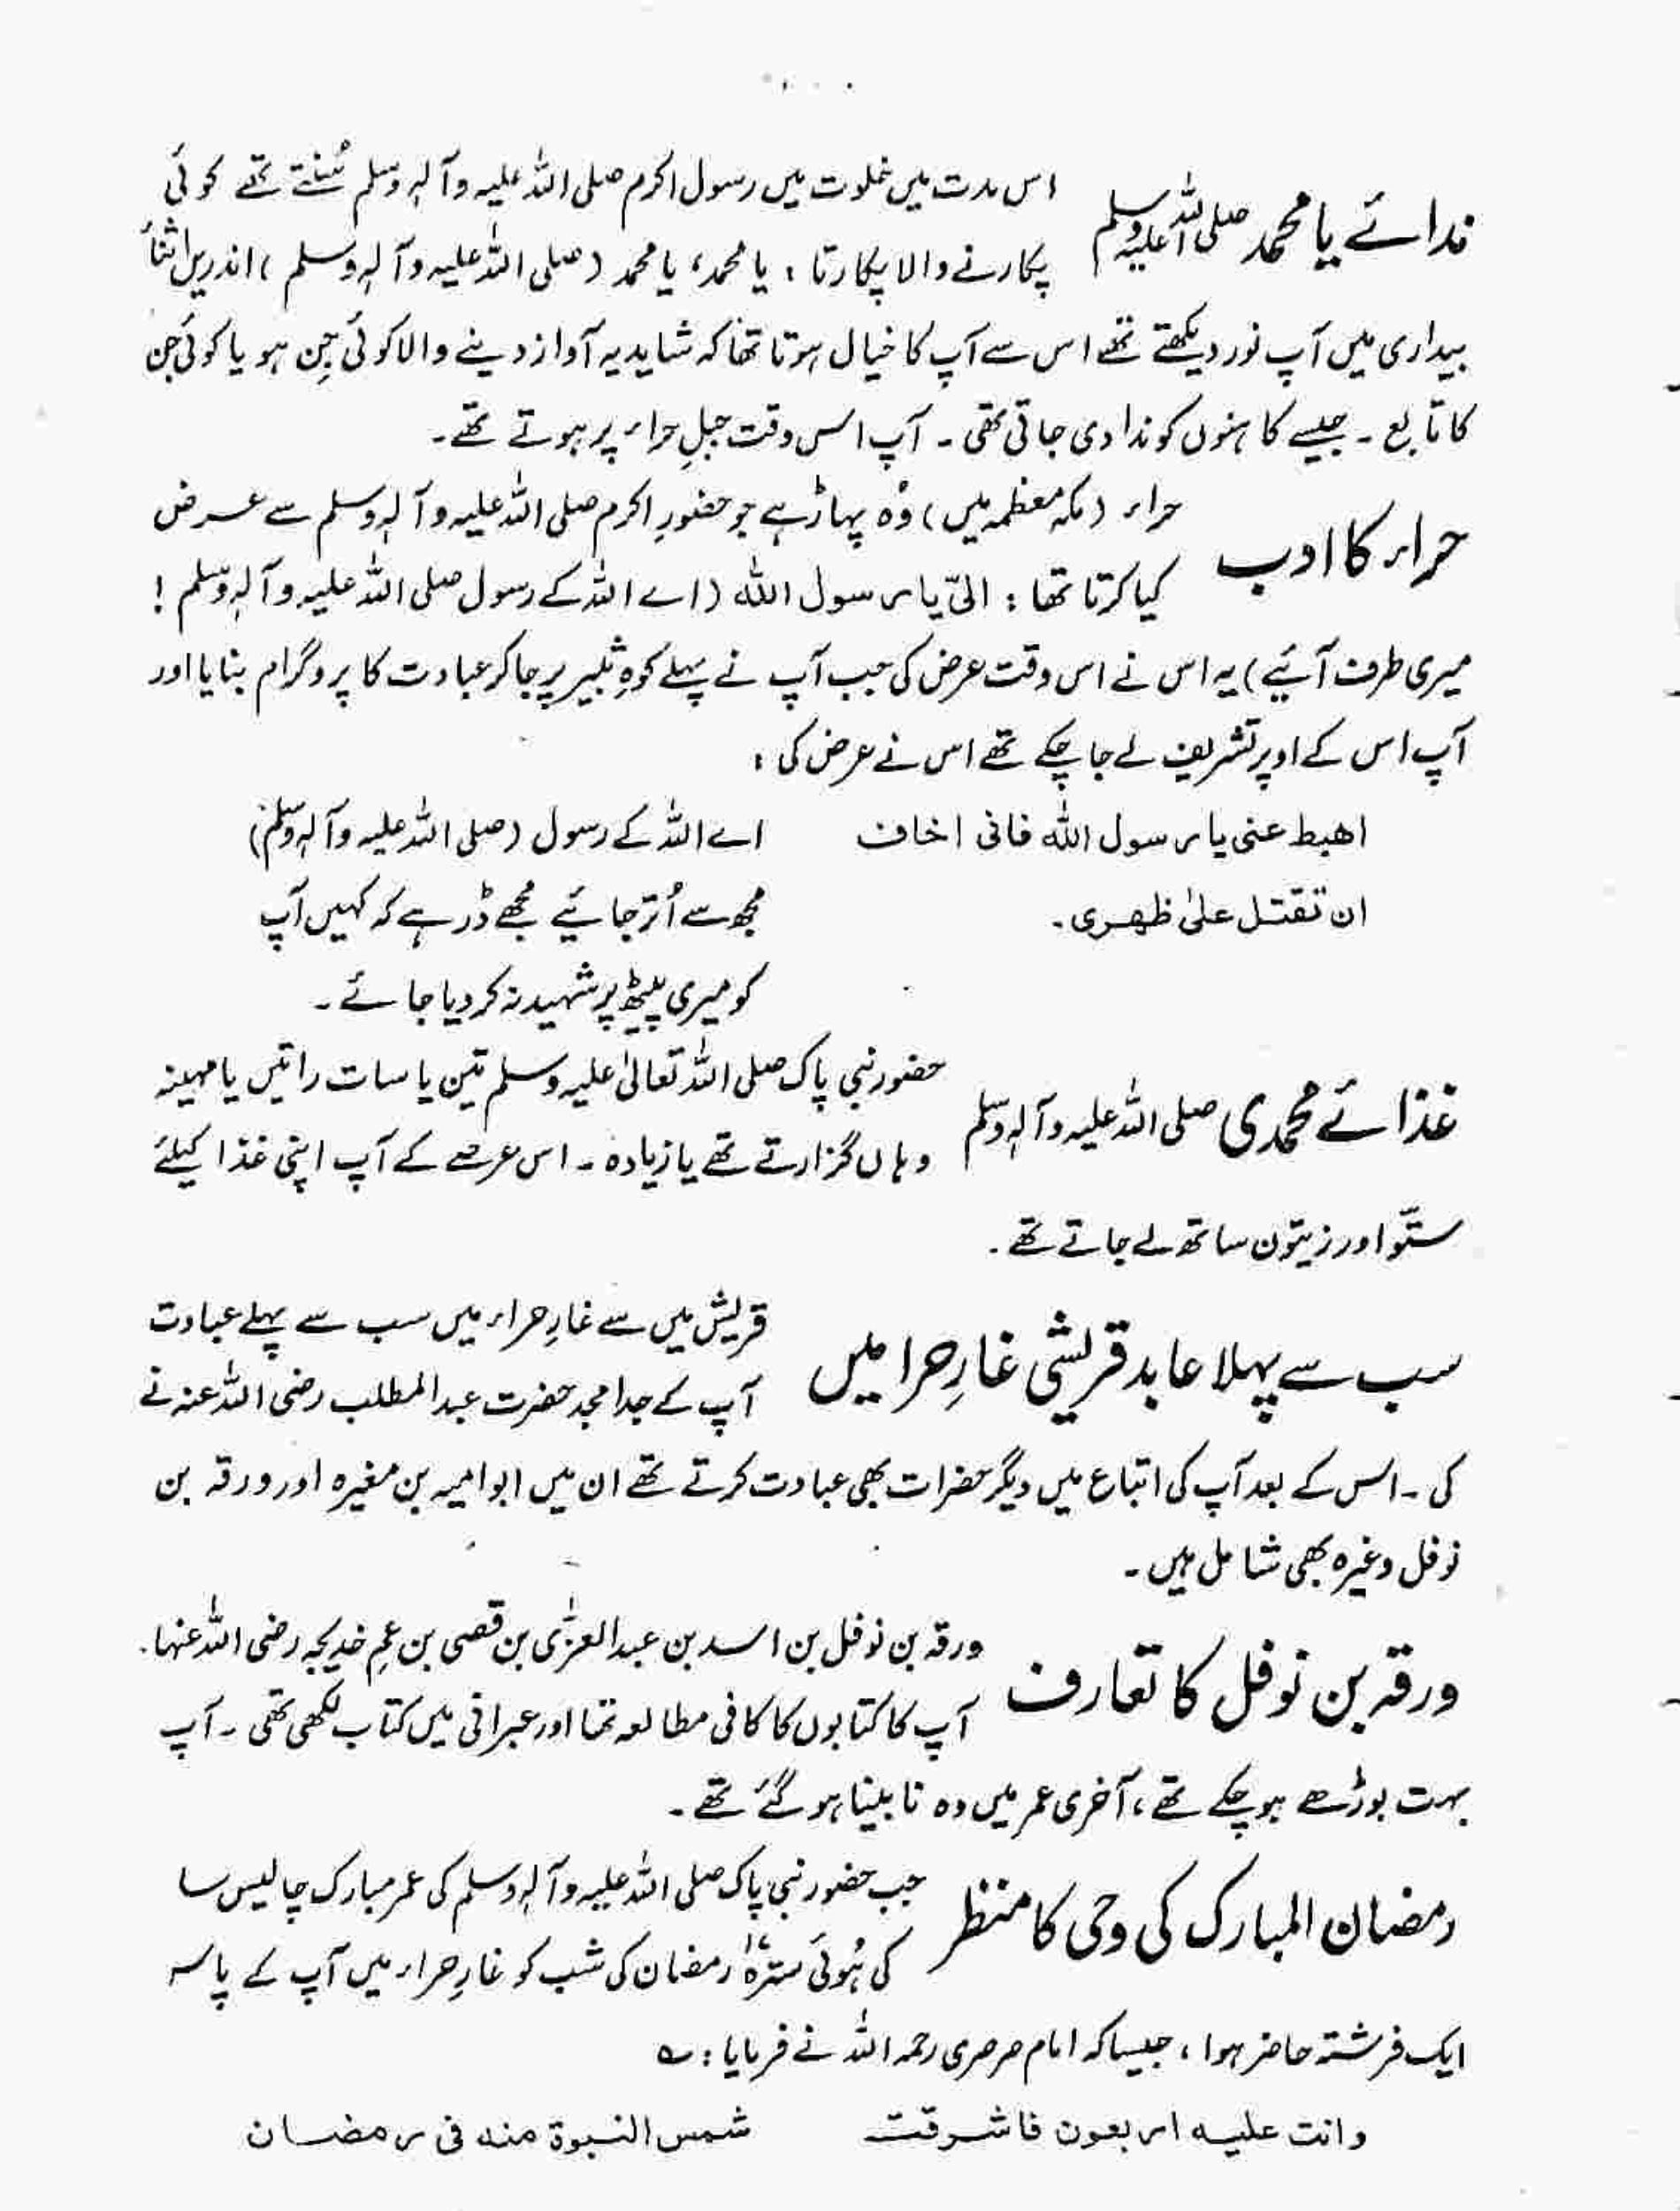 ندائے یا محمد صلی اللہ علیہ وسلم
اس مدت میں خلوت میں رسول اکرم صلی اللہ علیہ وآلہٖ وسلم سُنتے تھے کوئی
پکارنے والا پکارتا : یا محمد، یا محمد (صلی اللہ علیہ وآلہٖ وسلم)، اندریں اثنأ
بیداری میں آپ نور دیکھتے تھے اس سے آپ کا خیال ہوتا تھا کہ شاید یہ آواز دینے والا کوئی جِن ہو یا کوئی جن
کا تابع ۔ جیسے کاہنوں کو ندا دی جاتی تھی ۔ آپ اس وقت جبلِ حراء پر ہوتے تھے۔
حراء کا ادب
حراء (مکہ معظمہ میں) وُہ پہاڑ ہے جو حضورِ اکرم صلی اللہ علیہ وآلہٖ وسلم سے عرض
کیا کرتا تھا : الیّ یا رسول اللہ (اے اللہ کے رسول صلی اللہ علیہ وآلہٖ وسلم !
میری طرف آئیے) یہ اس نے اس وقت عرض کی جب آپ نے پہلے کوہِ ثبیر پر جا کر عبادت کا پروگرام بنایا اور
آپ اس کے اوپر تشریف لے جا چکے تھے اس نے عرض کی :
اھبط عنی یا رسول اللہ فانی اخاف
ان تقتل علیٰ ظھری۔
اے اللہ کے رسول (صلی اللہ علیہ وآلہٖ وسلم)
مجھ سے اُتر جائیے مجھے ڈر ہے کہ کہیں آپ
کو میری پیٹھ پر شہید نہ کر دیا جائے ۔
غذائے محمدی صلی اللہ علیہ وآلہٖ وسلم
حضور نبی پاک صلی اللہ تعالیٰ علیہ وسلم تین یا سات راتیں یا مہینہ
وہاں گزارتے تھے یا زیادہ ۔ اس عرصے کے آپ اپنی غذا کیلئے
ستّو اور زیتون ساتھ لے جاتے تھے ۔
سب سے پہلا عابد قریشی غارِ حرا میں
قریش میں سے غارِ حراء میں سب سے پہلے عبادت
آپ کے جدِ امجد حضرت عبدالمطلب رضی اللہ عنہ نے
کی ۔ اس کے بعد آپ کی اتباع میں دیگر حضرات بھی عبادت کرتے تھے ان میں ابو امیہ بن مغیرہ اور ورقہ بن
نوفل وغیرہ بھی شامل ہیں ۔
ورقہ بن نوفل کا تعارف
ورقہ بن نوفل بن اسد بن عبدالعزّٰی بن قصی بن عمِ خدیجہ رضی اللہ عنہا ۔
آپ کا کتابوں کا کافی مطالعہ تھا اور عبرانی میں کتاب لکھی تھی ۔ آپ
بہت بوڑھے ہو چکے تھے ، آخری عمر میں وہ نابینا ہو گئے تھے ۔
رمضان المبارک کی وحی کا منظر
جب حضور نبی پاک صلی اللہ علیہ وآلہٖ وسلم کی عمر مبارک چالیس سا
کی ہُوئی سترہ رمضان کی شب کو غارِ حراء میں آپ کے پاس
ایک فرشتہ حاضر ہوا ، جیسا کہ امام صرصری رحمہ اللہ نے فرمایا : ؎
وانت علیہ اربعون فاشرقت
شمس النبوۃ منہ فی رمضان